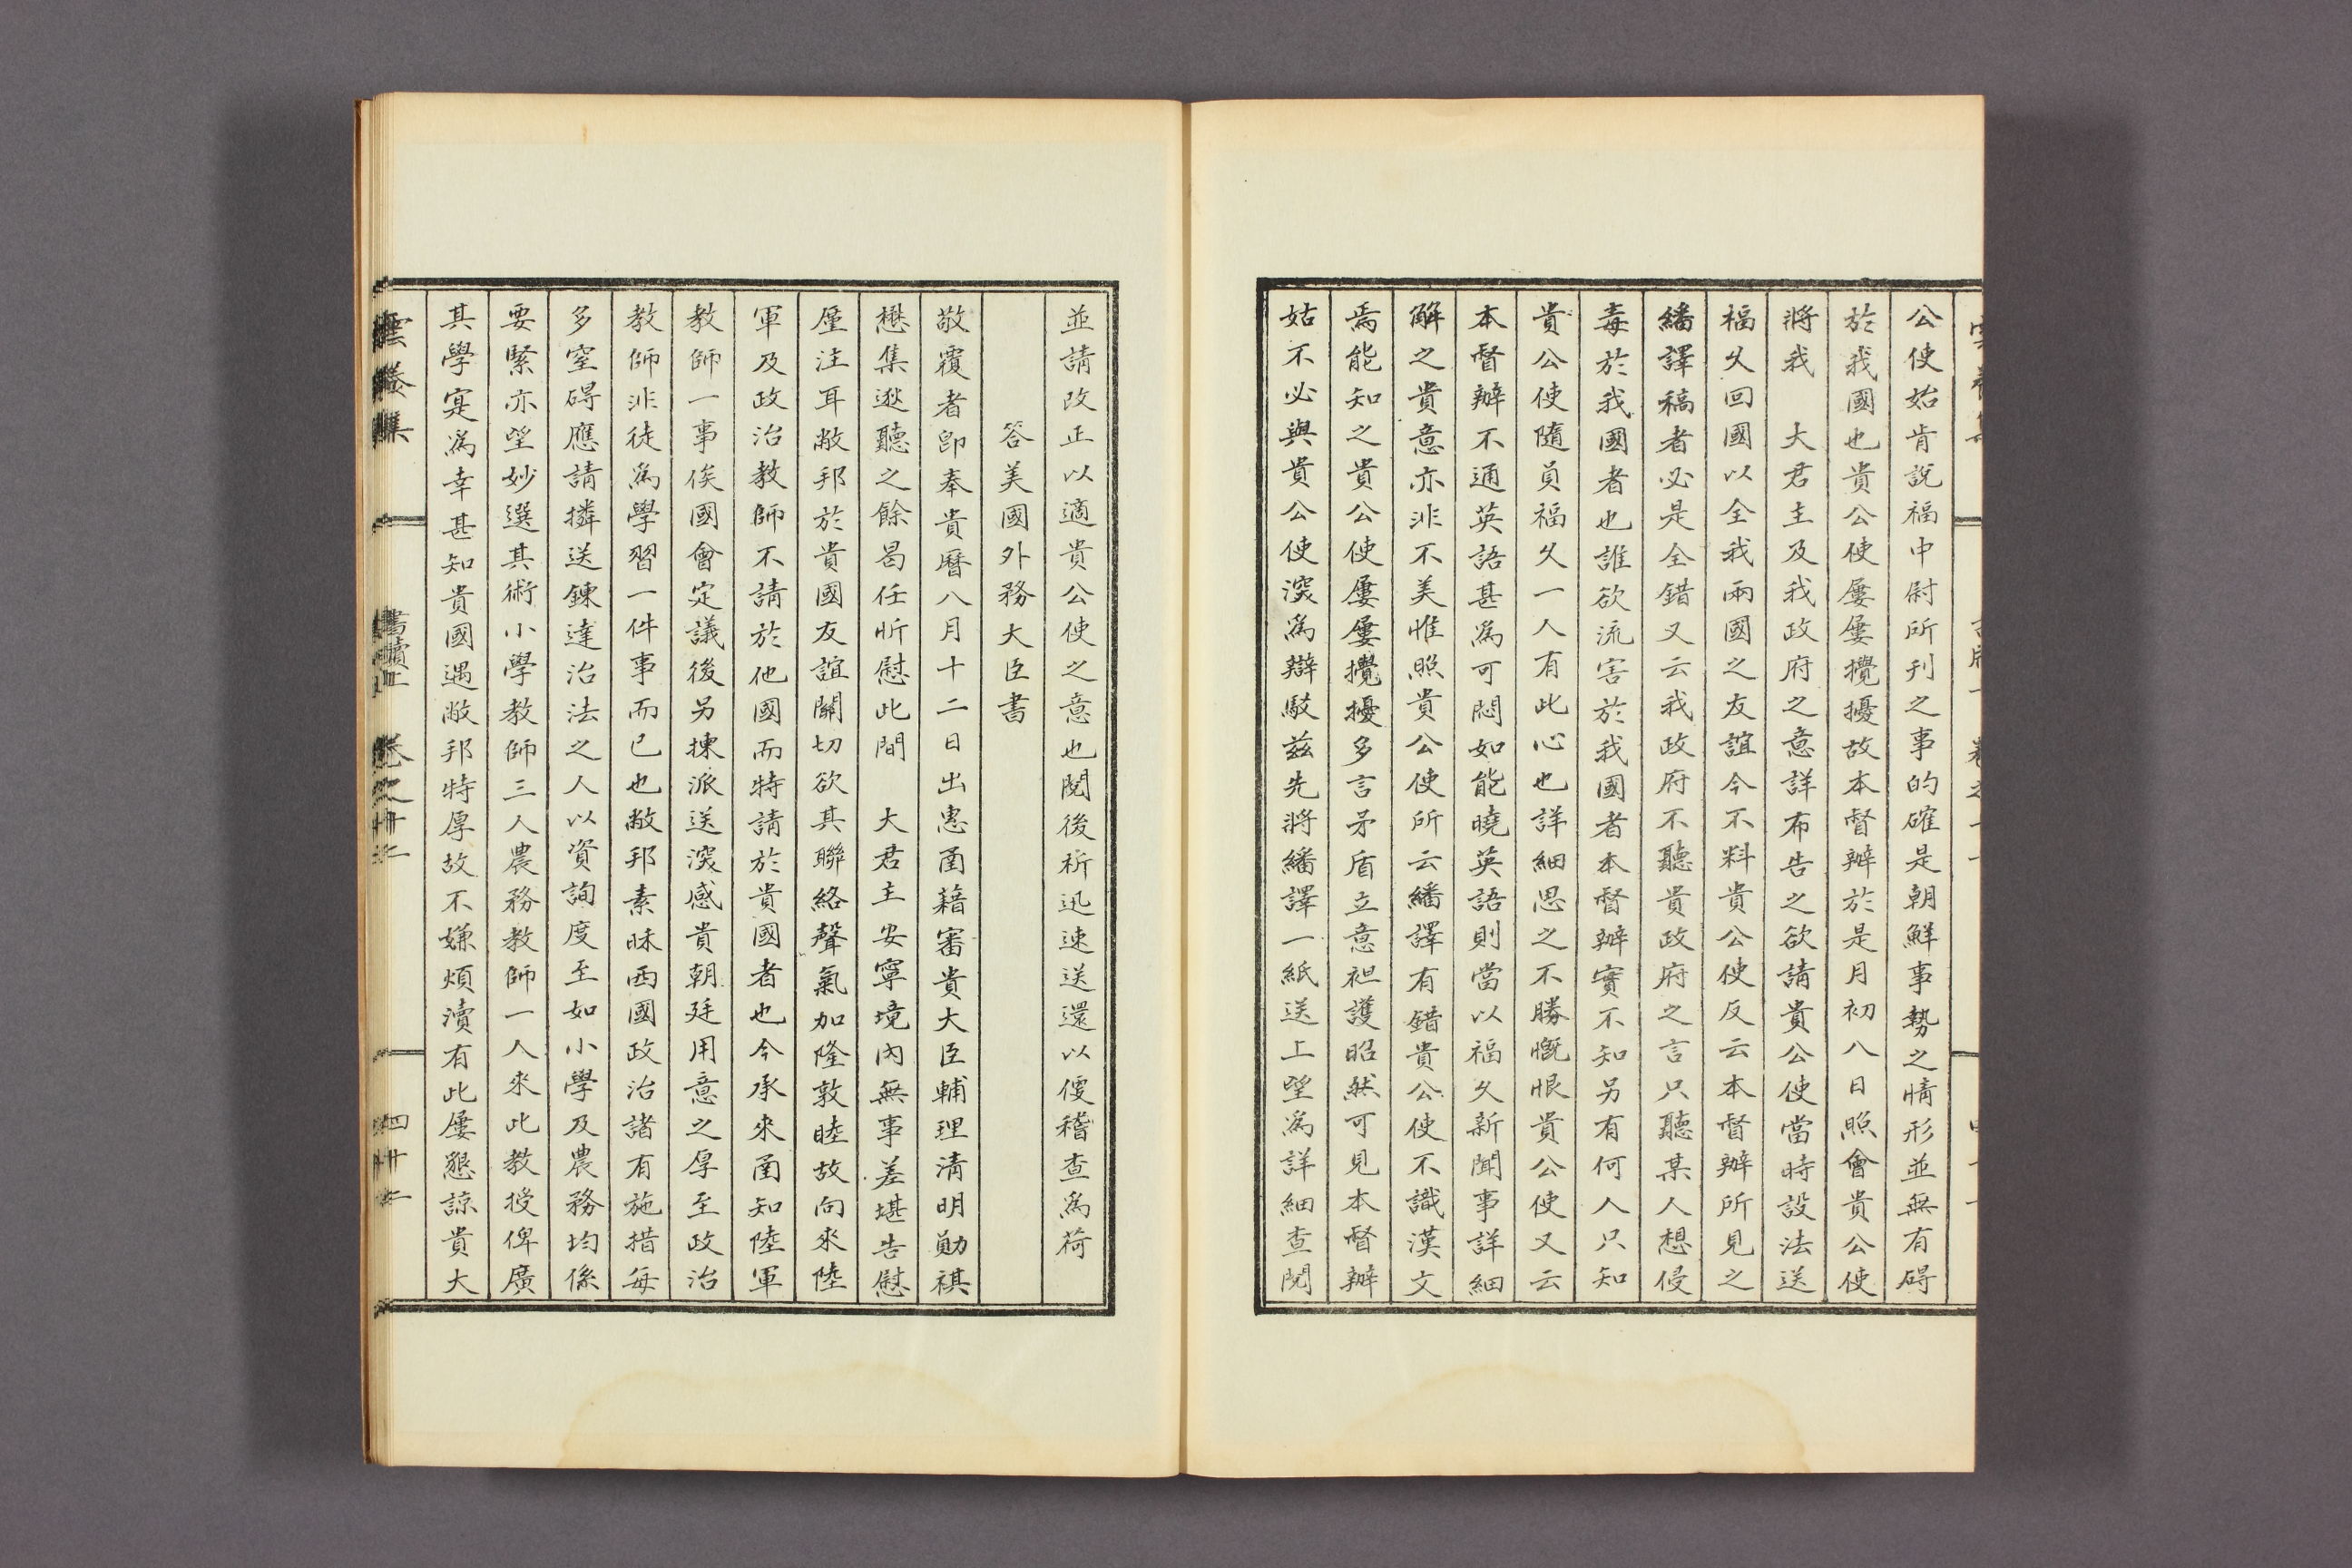 公使始肯說福中尉所刊之事的確是朝鮮事勢之情形並無有碍
於我國也貴公使屢屢攪擾故本督辦於是月初八日照會貴公使
將我　大君主及我政府之意詳布告之欲請貴公使當時設法送
福久回國以全我兩國之友誼今不料貴公使反云本督辦所見之
繙譯稿者必是全錯又云我政府不聽貴政府之言只聽某人想侵
毒於我國者也誰欲流害於我國者本督辦實不知另有何人只知
貴公使隨員福久一人有此心也詳細思之不勝慨恨貴公使又云
本督辦不通英語甚爲可悶如能曉英語則當以福久新聞事詳細
解之貴意亦非不美惟照貴公使所云繙譯有錯貴公使不識漢文
焉能知之貴公使屢屢攪擾多言矛盾立意袒護昭然可見本督辦
姑不必與貴公使深爲辯駁玆先將繙譯一紙送上望爲詳細查閱
並請改正以適貴公使之意也閱後祈迅速送還以便稽查爲荷
答美國外務大臣書
敬覆者卽奉貴曆八月十二日出惠函藉審貴大臣輔理淸明勛祺
懋集遜聽之餘曷任昕慰此間　大君主安寧境內無事差堪告慰
廑注耳敝邦於貴國友誼關切欲其聯絡聲氣加隆敦睦故向來陸
軍及政治教師不請於他國而特請於貴國者也今承來函知陸軍
教師一事俟國會定議後另揀派送深感貴朝廷用意之厚至政治
教師非徒爲學習一件事而已也敝邦素昧西國政治諸有施措每
多窒碍應請揀送鍊達治法之人以資詢度至如小學及農務均係
要緊亦望妙選其術小學教師三人農務教師一人來此教授俾廣
其學寔爲幸甚知貴國遇敝邦特厚故不嫌煩瀆有此屢懇諒貴大
雲養集　書牘上　卷之十二　四十二